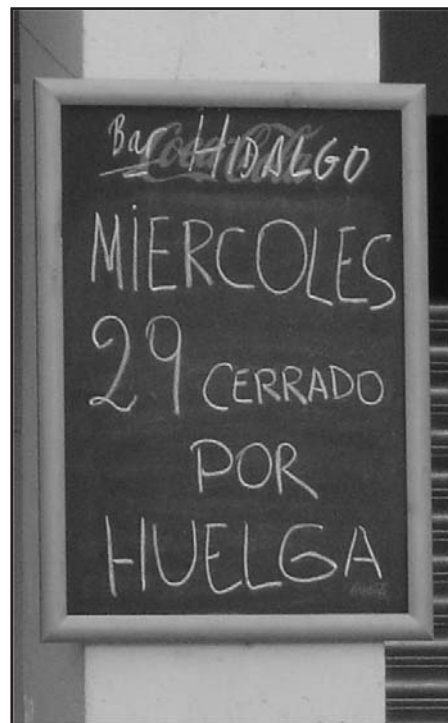 Bar HIDALGO
Coca-Cola
MIERCOLES
29 CERRADO
POR
HUELGA